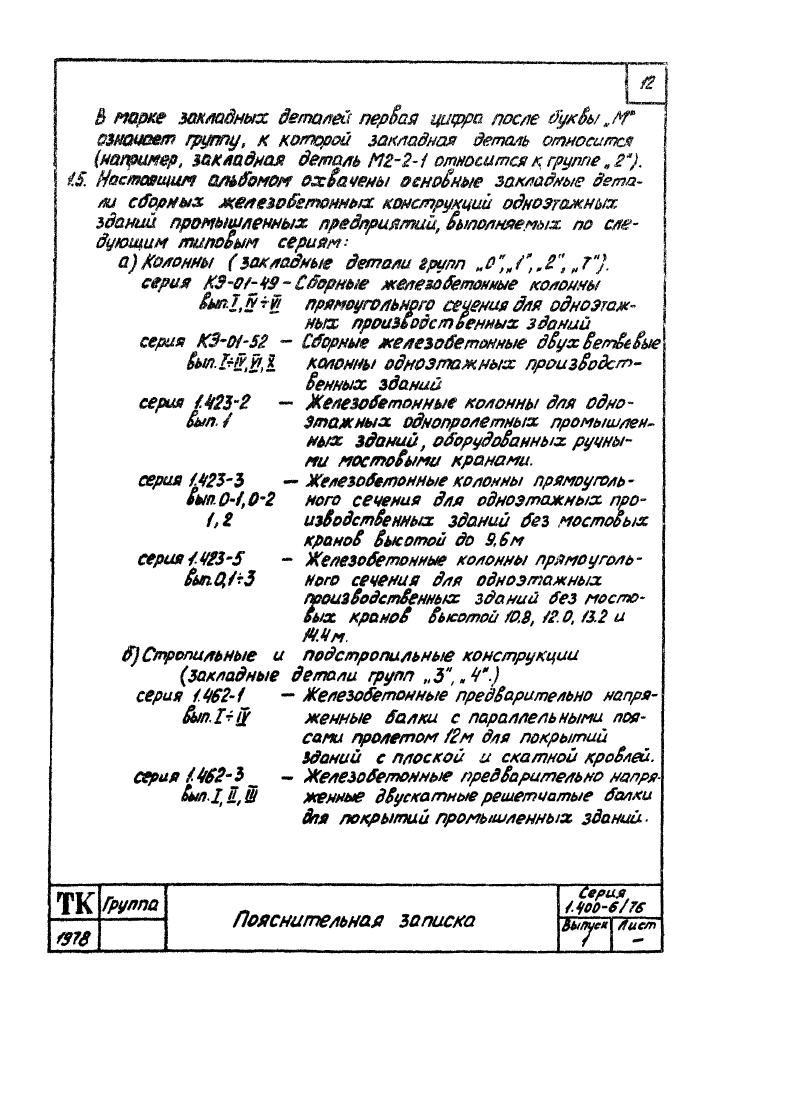 12
В марке закладных деталей первая цифра после буквы „М"
означает группу, к которой закладная деталь относится
(например, закладная деталь М2-2-1 относится к группе „2").
1.5. Настоящим альбомом охвачены основные закладные дета-
ли сборных железобетонных конструкций одноэтажных
зданий промышленных предприятий, выполняемых по сле-
дующим типовым сериям:
а) Колонны (закладные детали групп „0",„1",„2",„7").
серия КЭ-01-49 – Сборные железобетонные колонны
вып. I, IV÷VI прямоугольного сечения для одноэтаж-
ных производственных зданий
серия КЭ-01-52 – Сборные железобетонные двухветвевые
вып. I÷IV, VI, X колонны одноэтажных производст-
венных зданий
серия 1.423-2 – Железобетонные колонны для одно-
вып. 1 этажных однопролетных промышлен-
ных зданий, оборудованных ручны-
ми мостовыми кранами.
серия 1.423-3 – Железобетонные колонны прямоуголь-
вып. 0-1, 0-2 ного сечения для одноэтажных про-
1, 2 изводственных зданий без мостовых
кранов высотой до 9,6 м
серия 1.423-5 – Железобетонные колонны прямоуголь-
вып. 0,1÷3 ного сечения для одноэтажных
производственных зданий без мосто-
вых кранов высотой 10.8, 12.0, 13.2 и
14.4 м.
б) Стропильные и подстропильные конструкции
(закладные детали групп „3", „4".)
серия 1.462-1 – Железобетонные предварительно напря-
вып. I÷IV женные балки с параллельными поя-
сами пролетом 12м для покрытий
зданий с плоской и скатной кровлей.
серия 1.462-3 – Железобетонные предварительно напря-
вып. I, II, III женные двускатные решетчатые балки
для покрытий промышленных зданий.
ТК Группа
1978
Пояснительная записка
Серия
1.400-6/76
Выпуск Лист
1 –